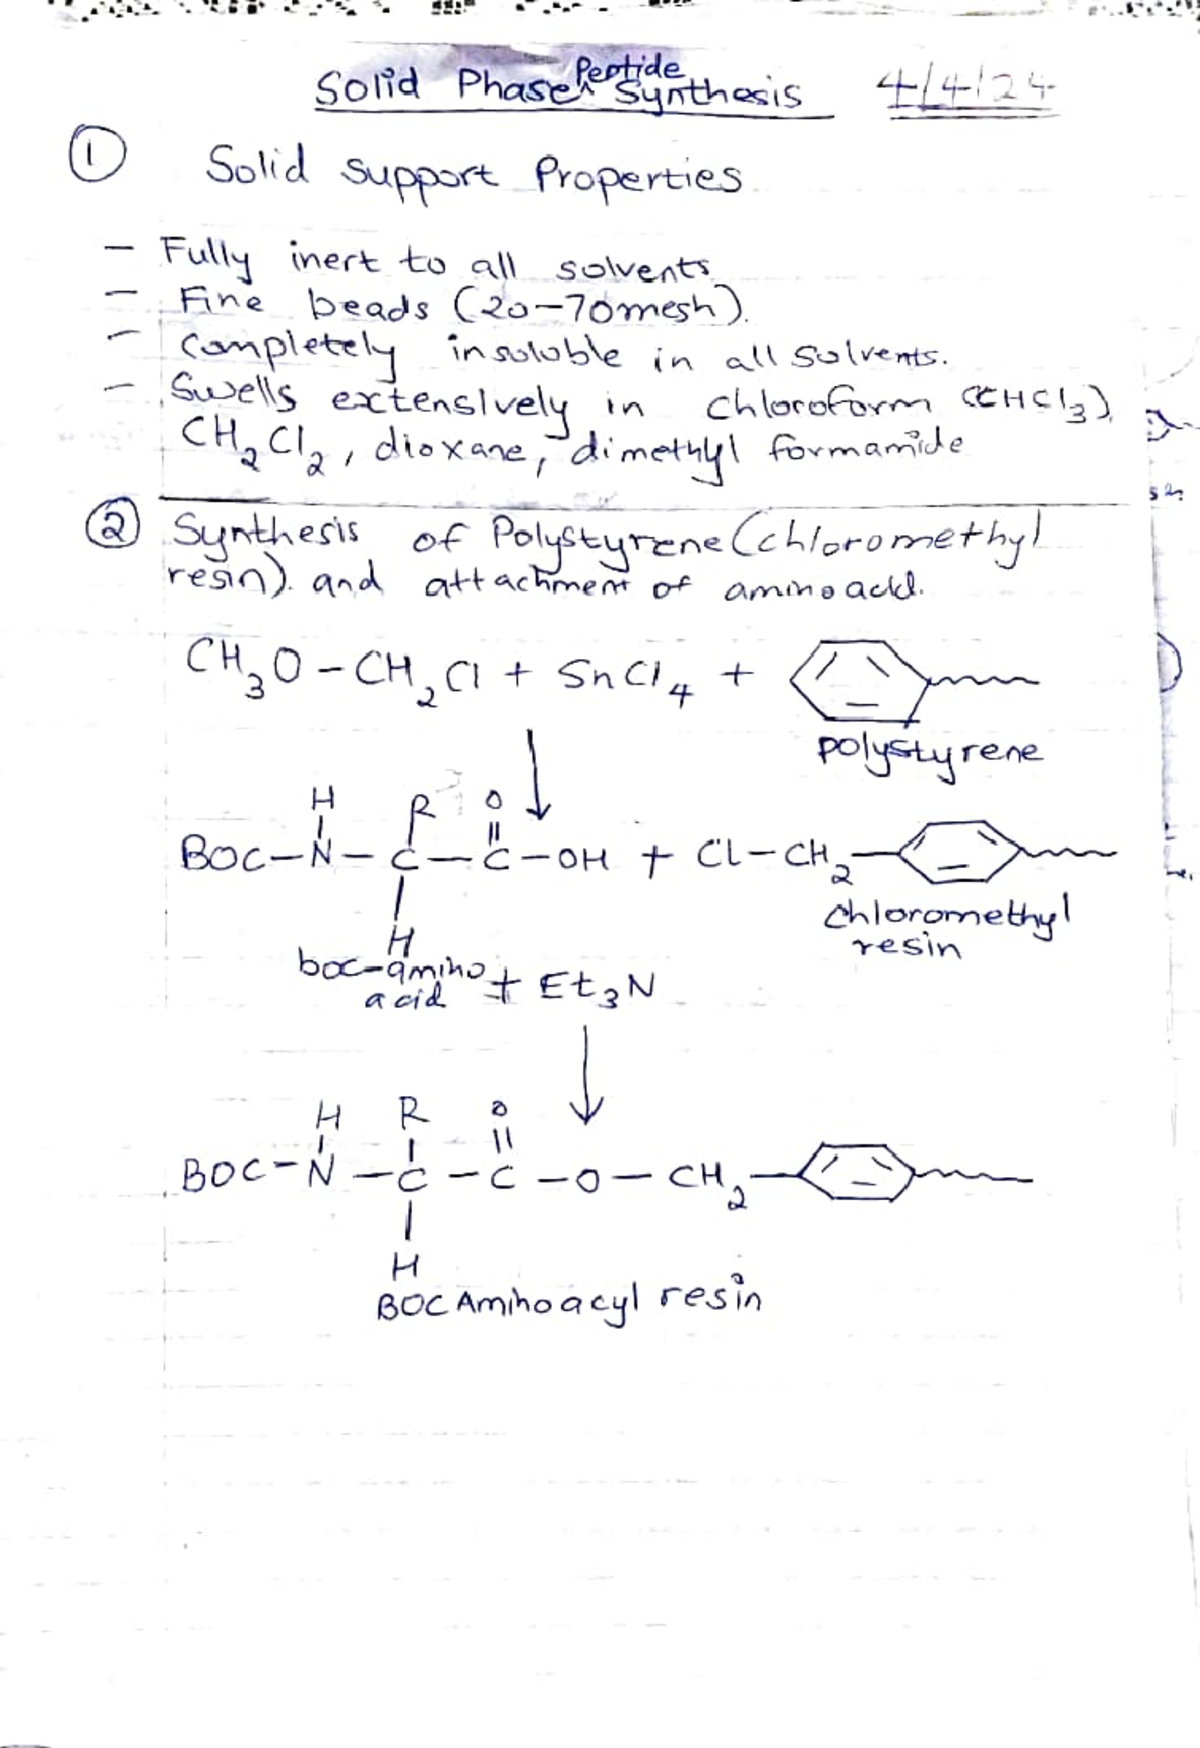 Solid Phase Peptide Synthesis 4/4/24
① Solid support Properties
- Fully inert to all solvents
- Fine beads (20-70mesh).
- Completely insoluble in all solvents.
- Swells extensively in chloroform (CHCl3),
CH2Cl2, dioxane, dimethyl formamide
② Synthesis of Polystyrene (chloromethyl
resin). and attachment of amino acid.
CH3O-CH2Cl + SnCl4 +
polystyrene
H R O
BOC-N-C-C-OH + Cl-CH2-
H
chloromethyl
resin
boc-amino
acid + Et3N
H R O
BOC-N-C-C-O-CH2-
H
BOC Aminoacyl resin